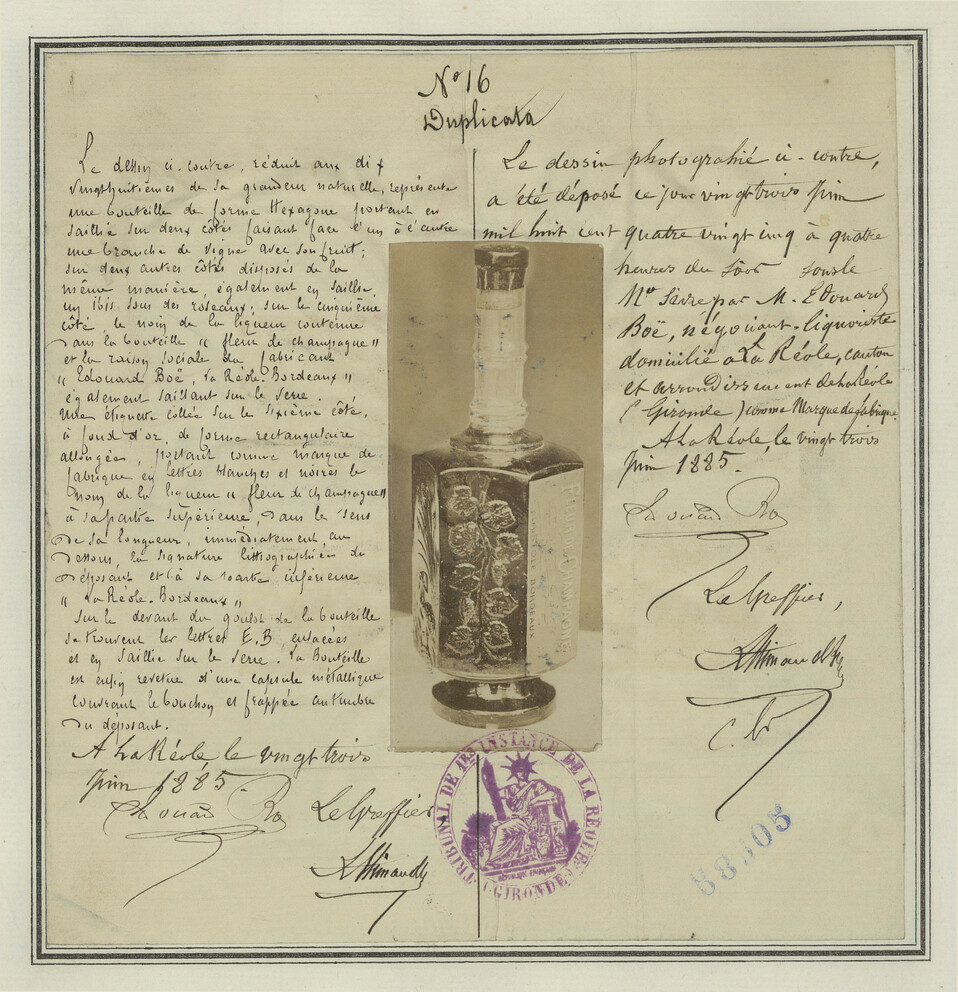 Nº 16
Duplicata
Le dessin ci-contre, réduit aux dix
vingthuitièmes de sa grandeur naturelle, représente
une bouteille de forme Hexagone portant en
saillie sur deux côtés faisant face l'un à l'autre
une branche de vigne avec son fruit;
sur deux autres côtés disposés de la
même manière, également en saillie,
un Ibis sous des roseaux; sur le cinquième
côté, le nom de la liqueur contenue
dans la bouteille " fleur de champagne "
et la raison sociale du fabricant
" Edouard Boë, La Réole-Bordeaux "
également saillant sur le verre.
Une étiquette collée sur le sixième côté,
à fond d'or, de forme rectangulaire
allongée, portant comme marque de
fabrique en lettres blanches et noires le
nom de la liqueur " fleur de champagne "
à sa partie supérieure, dans le sens
de sa longueur, immédiatement au
dessous, la signature lithographiée du
déposant et à sa partie inférieure
" La Réole-Bordeaux "
Sur le devant du goulot de la bouteille
se trouvent les lettres E.B, enlacées
et en saillie sur le verre. La Bouteille
est enfin revetue d'une capsule métallique
couvrant le bouchon et frappée au timbre
du déposant.
A La Réole le vingt trois
Juin 1885.
Edouard Boë
Le Greffier
Le dessin photograhié ci-contre,
a été déposé ce jour vingt trois Juin
mil huit cent quatre vingt cinq à quatre
heures du soir sous le
Nº Seize par M. Edouard
Boë, négociant-liquoriste
domicilié a La Réole, canton
et arrondissement de La Réole
(Gironde) comme Marque de fabrique.
A La Réole, le vingt trois
Juin 1885.
Edouard Boë
Le Greffier,
TRIBUNAL DE 1RE INSTANCE DE LA REOLE
(GIRONDE)
RÉPUBLIQUE FRANÇAISE
88305